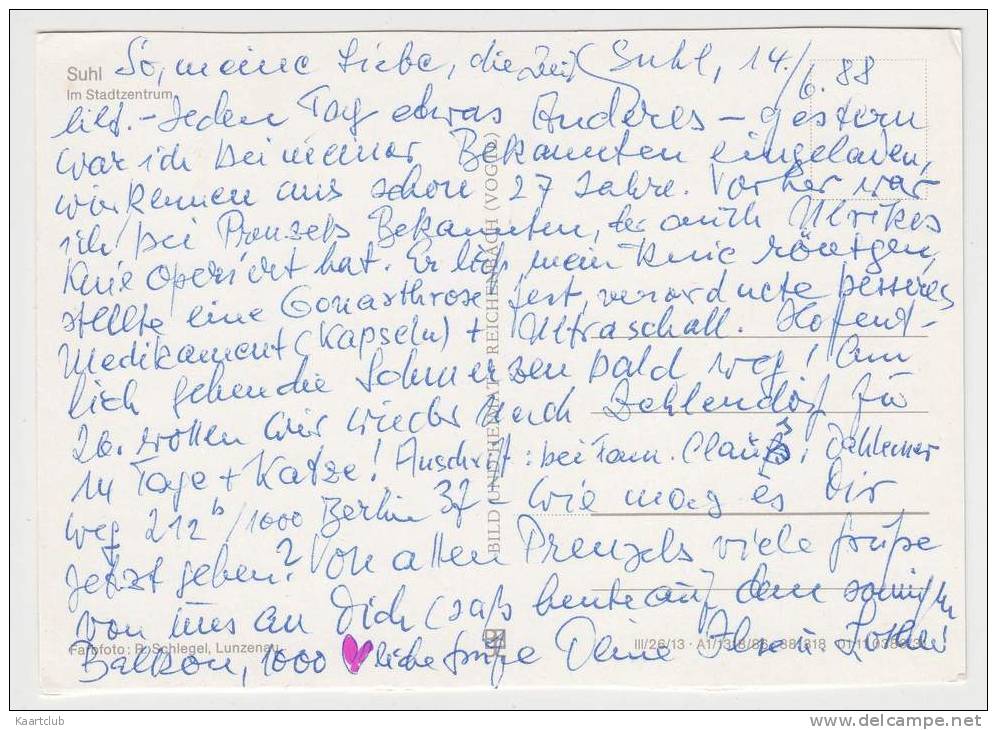 So, meine Liebe, die Zeit Suhl, 14./6.88
Suhl
Im Stadtzentrum
eilt. - Jeden Tag etwas Anderes - gestern
war ich bei meiner Bekannten eingeladen,
wir kennen uns schon 27 Jahre. Vorher war
ich bei Prenzels Bekannten, der auch Ulrikes
Knie operiert hat. Er ließ mein Knie röntgen,
stellte eine Gonarthrose fest, verordnete besseres
Medikament (Kapseln) + Ultraschall. Hoffent-
lich gehen die Schmerzen bald weg! Am
26. wollen wir wieder nach Zehlendorf für
14 Tage + Katze! Anschrift: bei Fam. Clauß, Dahlemer
Weg 212b/1000 Berlin 37 - Wie mag es Dir
jetzt gehen? Von allen Prenzels viele Grüße
von uns an Dich (saß heute auf dem sonnigen
Balkon, 1000 liebe Grüße Deine Ilse u. Lothar
BILD UND HEIMAT REICHENBACH (VOGTL)
Farbfoto: R. Schlegel, Lunzenau
III/26/13 · A1/
Kaartclub
www.delcampe.net